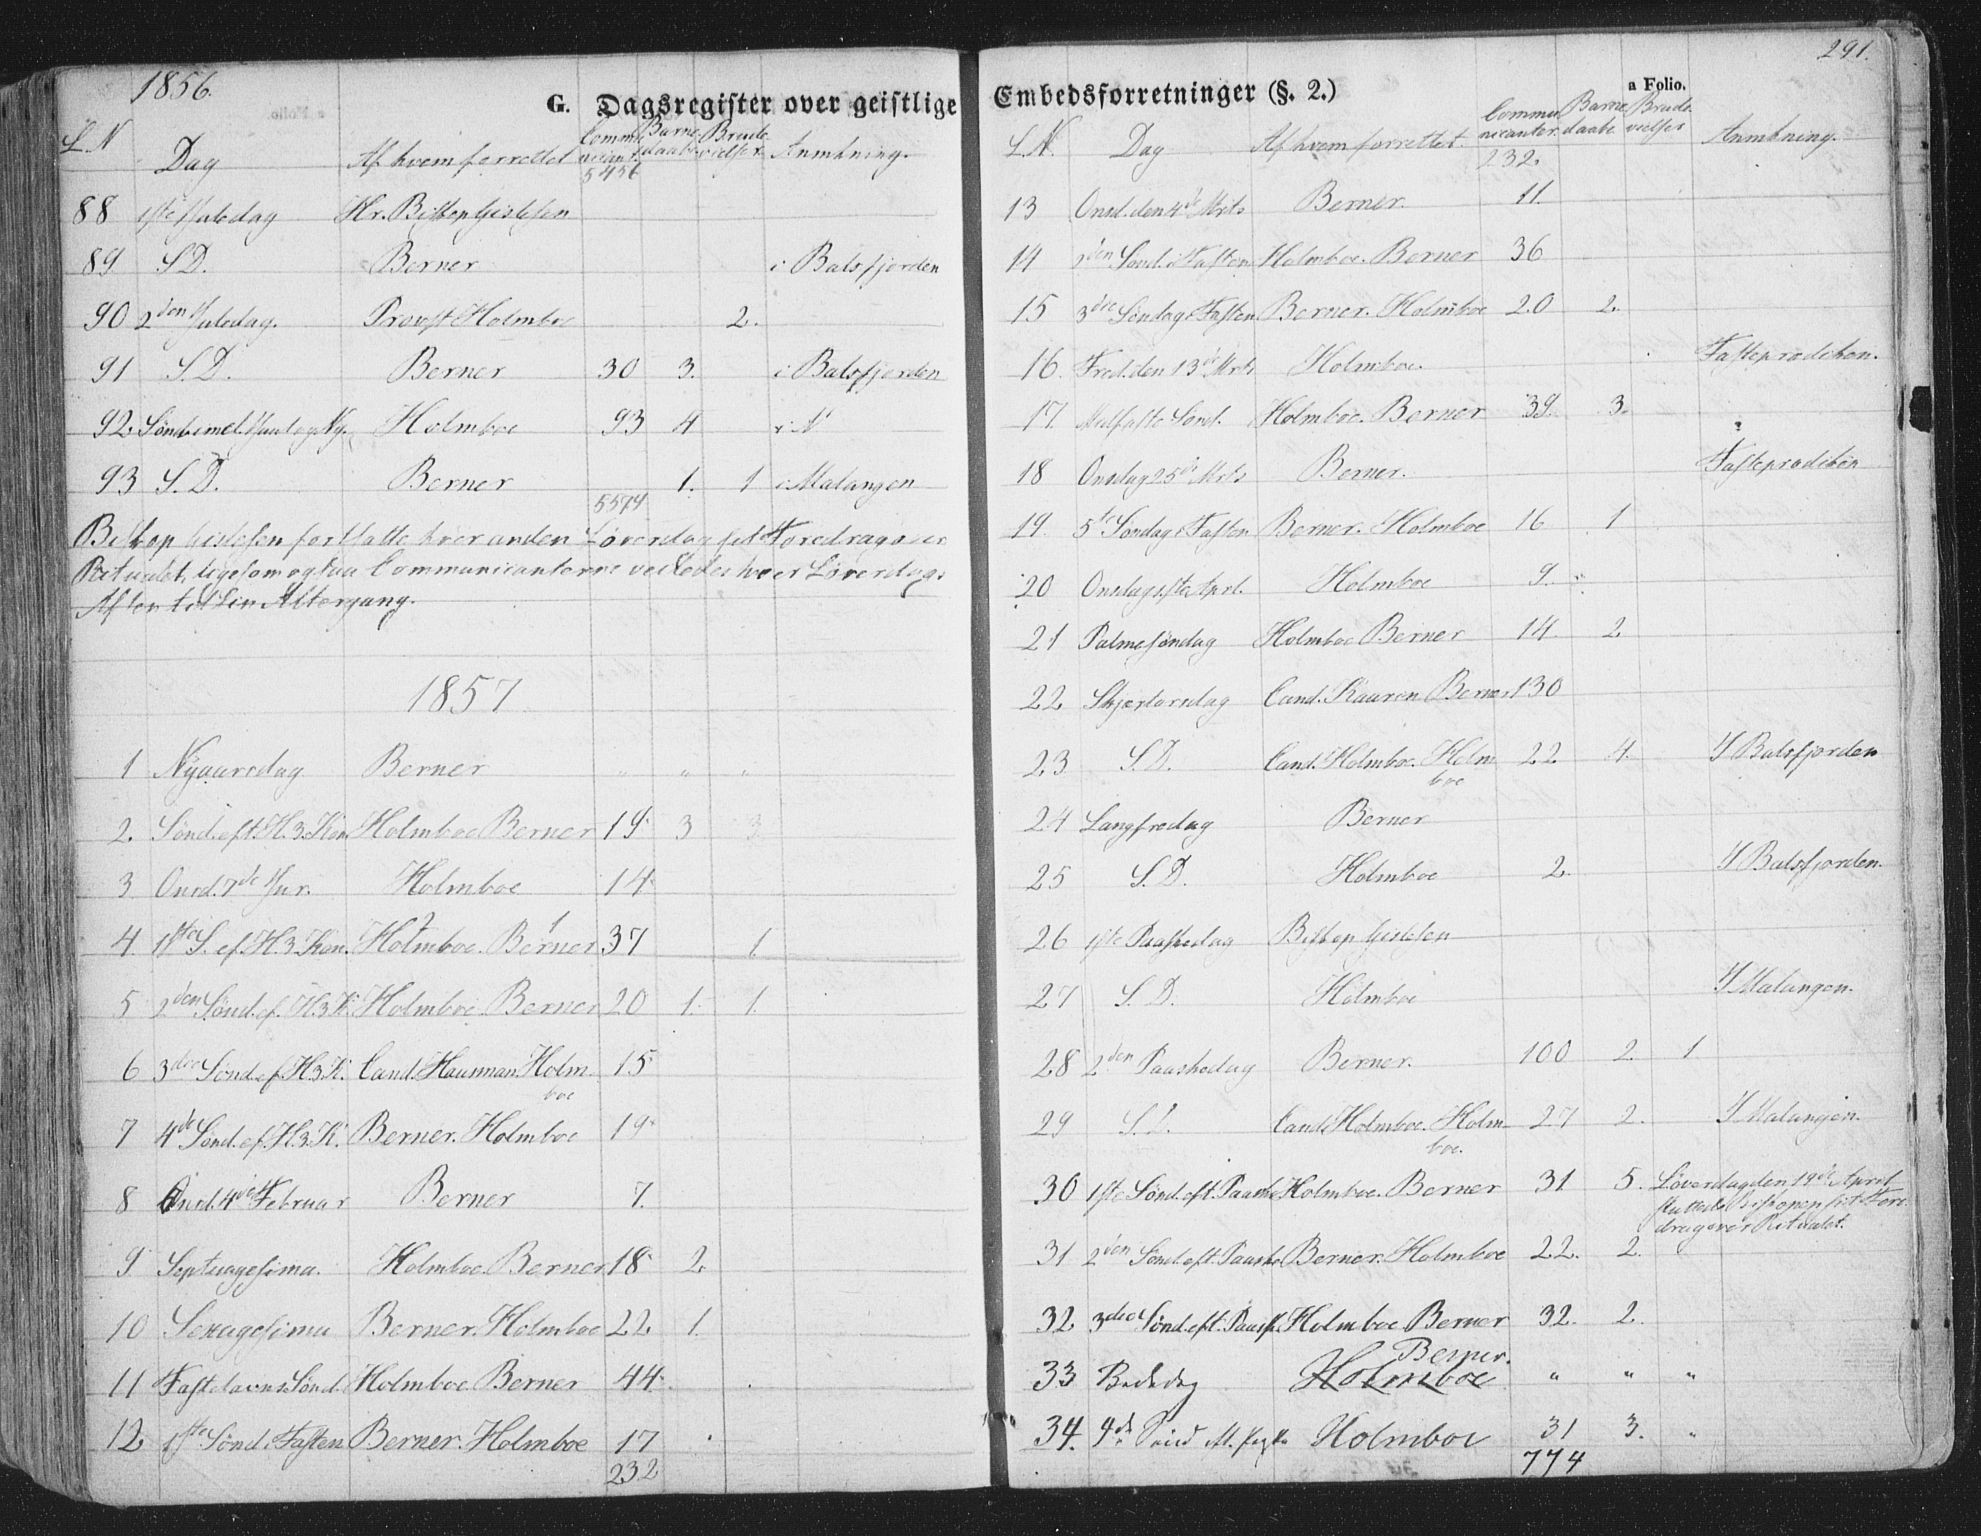 1856.
G. Dagsregister over geistlige
L.N Dag Af hvem forrettet Communicant. Barnedaab Brudevielser Anmkning.
5456
88 1ste Juledag Hr. Biskop Gislesen
89 S.D. Berner i Balsfjorden
90 2den Juledag. Provst Holmboe 2.
91 S.D. Berner 30 3. i Balsfjorden
92 Sønd. imel. Juul og Ny. Holmboe 93 4
93 S.D. Berner 1. 1 i Malangen
5574
Biskop Gislesen fortsatte hver anden Løverdag sit Foredrag over
Ritualet, ligesom ogsaa Communicanterne veiledes hver Løverdags
Aften til sin Altergang.
1857
1 Nyaarsdag Berner " " "
2. Sønd. eft. H. 3. Kon Holmboe Berner 19 3 3
3 Onsd. 7de Jnr. Holmboe 14
4 1ste S. ef. H. 3. Kon. Holmboe. Berner 37 1
5 2den Sønd. ef. H. 3 K. Holmboe Berner 20 1. 1.
6 3die Sønd. ef. H 3 K. Cand. Hauman. Holm
boe 15
7 4de Sønd. ef. H. 3. K. Berner. Holmboe 19
8 Onsd. 4de Februar Berner 7.
9 Septuagesima. Holmboe. Berner 18 2
10 Sexagesima Berner. Holmboe 22 1.
11 Fastelavns Sønd. Holmboe. Berner 44
12 1ste Sønd. i Fasten Berner. Holmboe 17
232
291.
Embedsforretninger (§. 2.) a Folio.
L.N. Dag Af hvem forrettet Communicanter Barnedaabe Brudevielser Anmkning.
232.
13 Onsd. den 4de Mrts Berner. 11.
14 2den Sønd. i Fasten Holmboe. Berner 36
15 3die Søndag i Fasten Berner. Holmboe 20 2.
16. Fred. den 13de Mrts Holmboe. Fasteprædiken.
17. Midfaste Sønd. Holmboe. Berner 39. 3.
18 Onsdag 25de Mrts Berner. Fasteprædiken
19. 5te Søndag i Fasten Berner. Holmboe 16 1
20 Onsdag 1ste Aprl. Holmboe 9.
21 Palmesøndag Holmboe Berner 14 2
22 Skjærtorsdag Cand. Kauren Berner 130
23 S.D. Cand. Holmboe. Holm
boe 22 4. I Balsfjorden
24 Langfredag Berner
25 S.D. Holmboe 2. I Balsfjorden.
26 1ste Paaskedag Biskop Gislesen
27 S.D. Holmboe I Malangen.
28 2den Paaskedag Berner. 100 2. 1
29 S.D. Cand Holmboe. Holm
boe. 27 2. I Malangen.
30 1ste Sønd. eft. Paaske Holmboe. Berner 31 5. Løverdag den 19de April
sluttede Biskopen sit Fore
drag over Ritualet.
31 2den Sønd. eft. Paaske Berner. Holmboe 22. 2.
32 3die Sønd. eft. Paaske Holmboe Berner 32. 2.
Berner.
33 Bededag Holmboe " " "
34. 4de Sønd eft. Paaske Holmboe 31 3. "
774